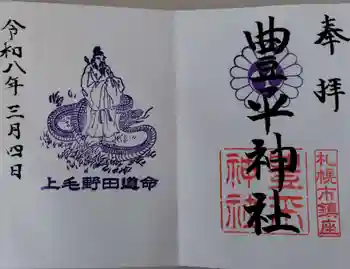 奉拝
豊平神社
札幌市鎮座
豊平
神社
令和八年三月四日
上毛野田道命